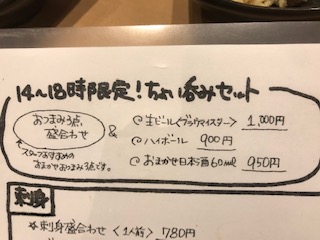 14〜18時限定!ちょい呑みセット
おつまみ3点
盛合わせ
&
生ビール<ブラウマイスター> 1,000円
ハイボール 900円
おまかせ日本酒60ml 950円
スタッフおすすめの
おまかせおつまみ3点です。
刺身
*刺身盛合わせ<1人前> 780円